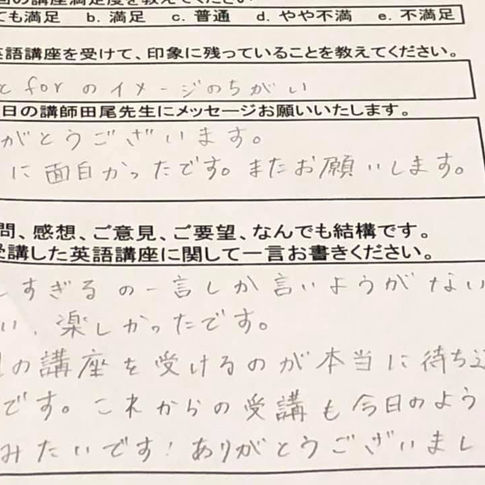 の講座満足度を教えてください。
ても満足 b. 満足 c. 普通 d. やや不満 e. 不満足
英語講座を受けて、印象に残っていることを教えてください。
と for のイメージのちがい
日の講師田尾先生にメッセージお願いいたします。
がとうございます。
に面白かったです。またお願いします。
問、感想、ご意見、ご要望、なんでも結構です。
受講した英語講座に関して一言お書きください。
しすぎるの一言しか言いようがない
い、楽しかったです。
の講座を受けるのが本当に待ち
です。これからの受講も今日のよう
みたいです！ありがとうございまし